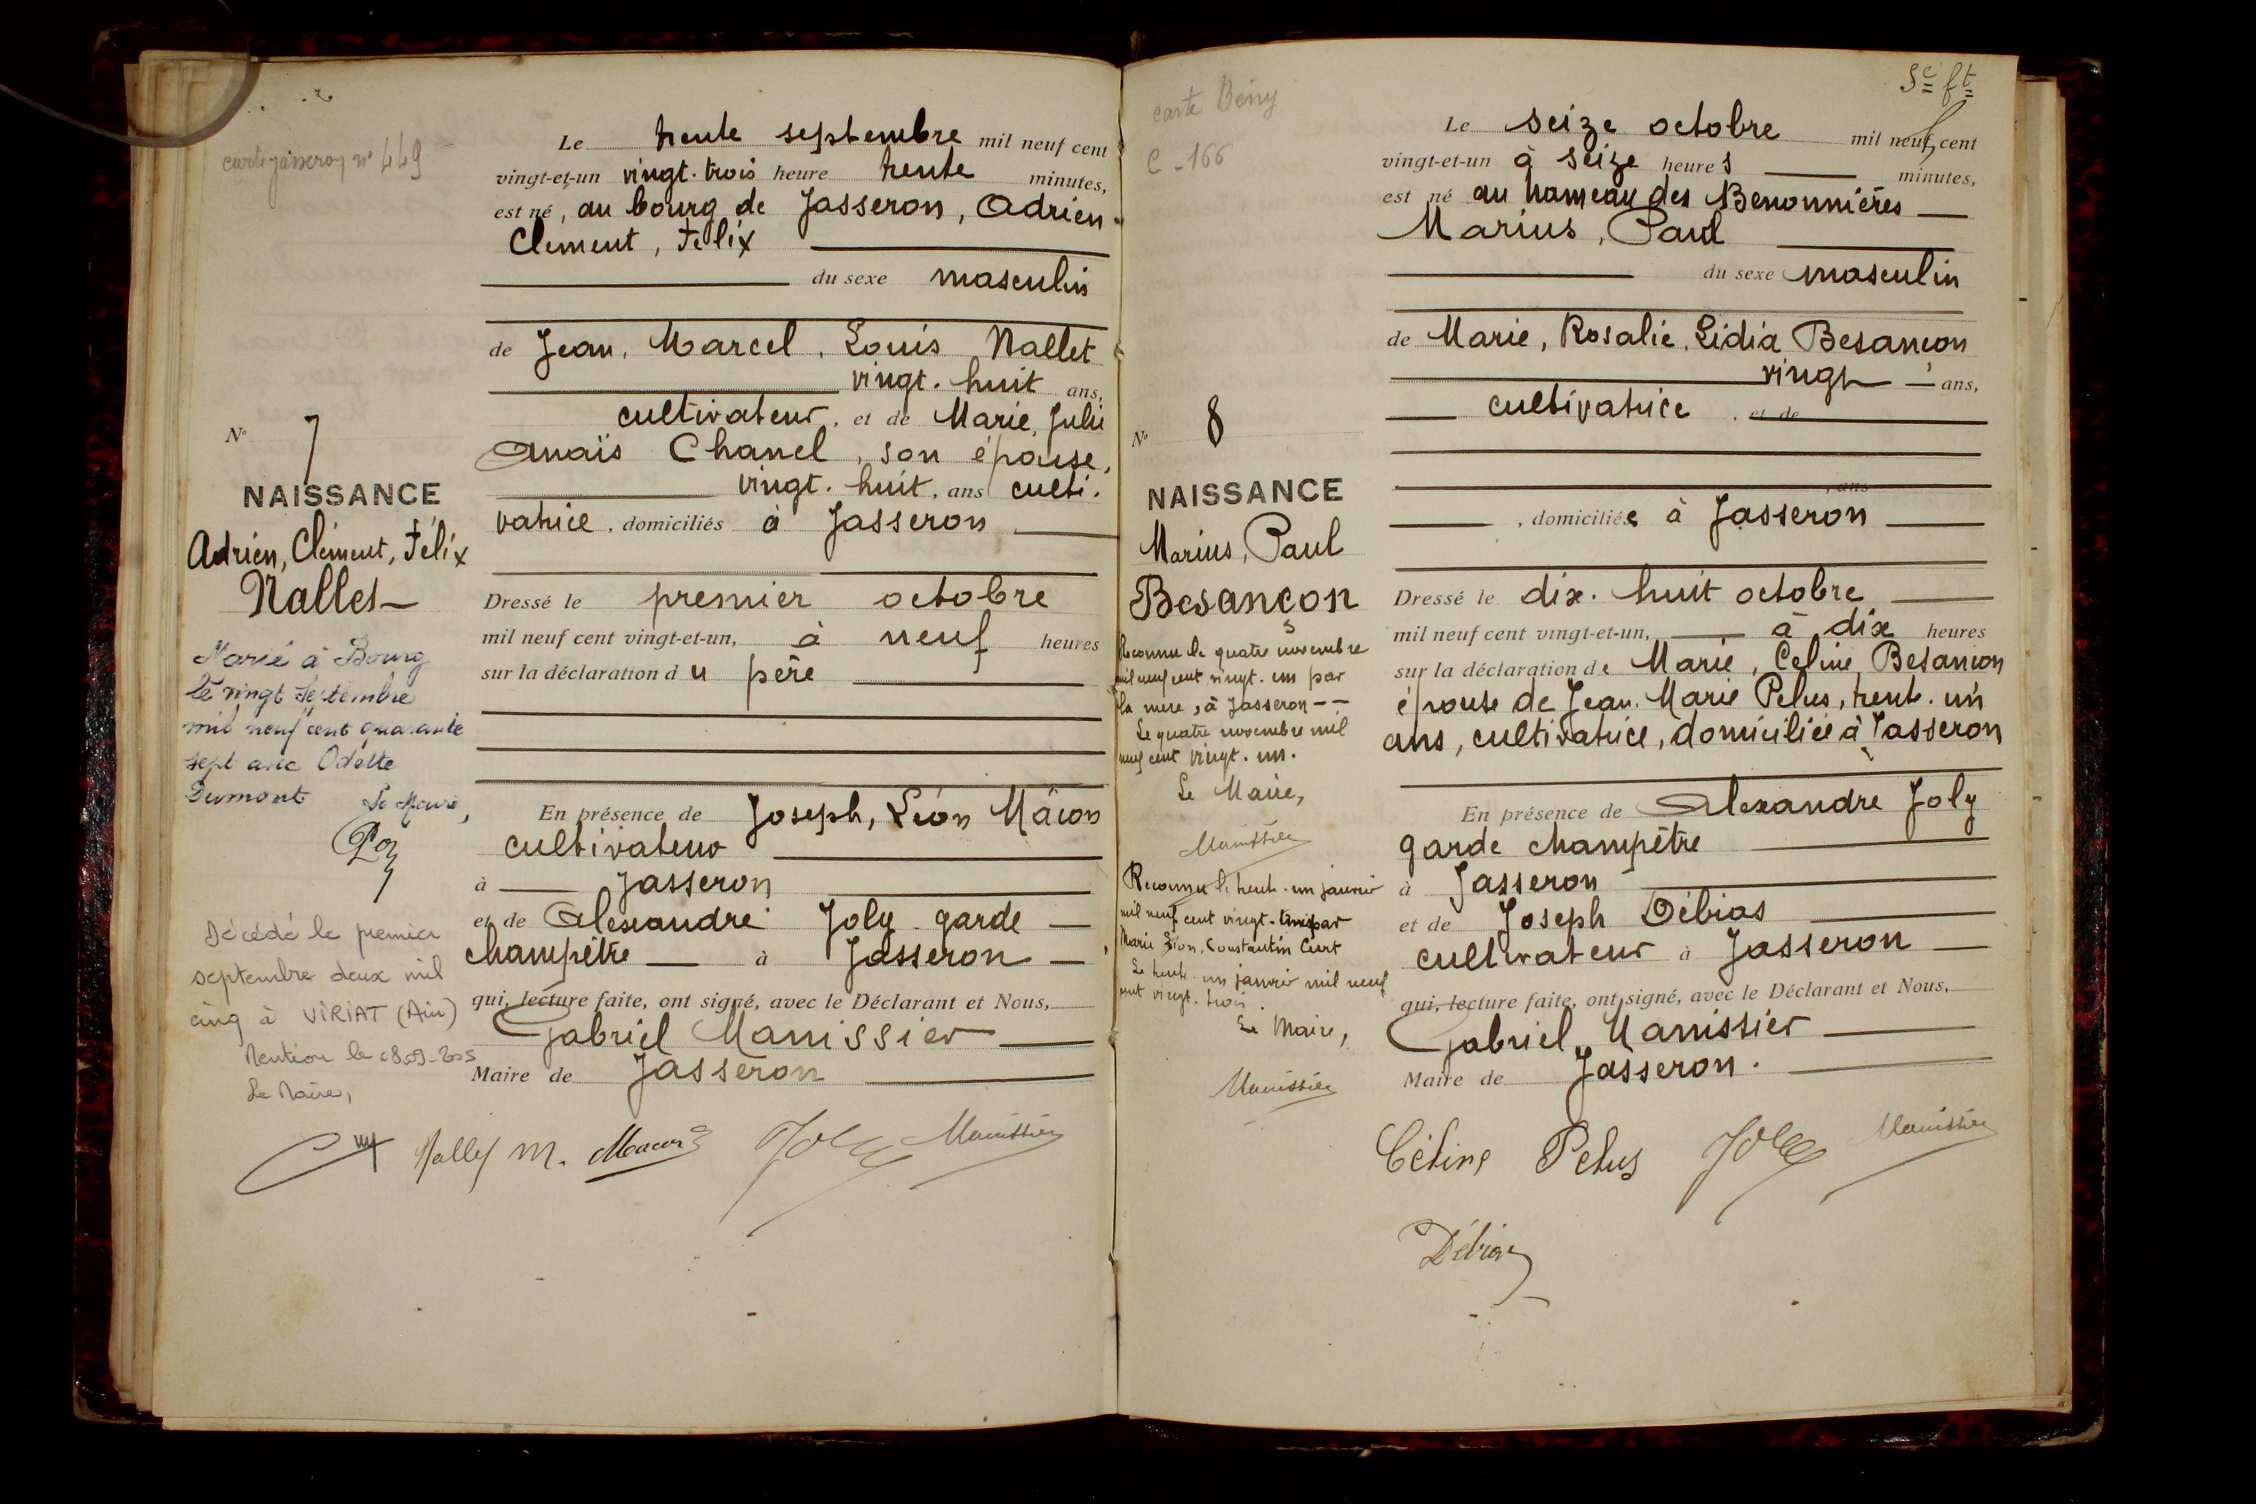 carte Jasseron n° 449
N° 7
NAISSANCE
Adrien, Clément, Félix
Nallet
Marié à Bourg
le vingt septembre
mil neuf cent quarante
sept avec Odette
Dumont Le Maire,
Décédé le premier
septembre deux mil
cinq à VIRIAT (Ain)
Mention le 08-09-2005
Le Maire,
Le trente septembre mil neuf cent
vingt-et-un vingt-trois heure trente minutes,
est né, au bourg de Jasseron, Adrien
Clément, Félix
du sexe masculin
de Jean, Marcel, Louis Nallet
vingt-huit ans,
cultivateur, et de Marie, Julie
Anaïs Chanel, son épouse,
vingt-huit, ans culti-
vatrice, domiciliés à Jasseron
Dressé le premier octobre
mil neuf cent vingt-et-un, à neuf heures
sur la déclaration du père
En présence de Joseph, Léon Mâcon
cultivateur
à Jasseron
et de Alexandre Joly garde
champêtre à Jasseron
qui, lecture faite, ont signé, avec le Déclarant et Nous,
Gabriel Manissier
Maire de Jasseron
Nallet M. Macon Joly Manissier
carte Bény
C - 166
N° 8
NAISSANCE
Marius, Paul
Besançon
Reconnu le quatre novembre
mil neuf cent vingt-un par
la mère, à Jasseron --
Le quatre novembre mil
neuf cent vingt-un.
Le Maire,
Manissier
Reconnu le trente-un janvier
mil neuf cent vingt-trois par
Marie Léon, Constantin Curt
Le trente-un janvier mil neuf
cent vingt-trois.
Le Maire,
Manissier
Le seize octobre mil neuf cent
vingt-et-un à seize heures minutes,
est né au hameau des Benonnières
Marius, Paul
du sexe masculin
de Marie, Rosalie, Lidia Besançon
vingt ans,
cultivatrice, et de
, ans
, domiciliée à Jasseron
Dressé le dix-huit octobre
mil neuf cent vingt-et-un, à dix heures
sur la déclaration de Marie, Céline Besançon
épouse de Jean-Marie Pelus, trente-un
ans, cultivatrice, domiciliée à Jasseron
En présence de Alexandre Joly
garde champêtre
à Jasseron
et de Joseph Débias
cultivateur à Jasseron
qui, lecture faite, ont signé, avec le Déclarant et Nous,
Gabriel Manissier
Maire de Jasseron.
Céline Pelus Joly Manissier
Débias